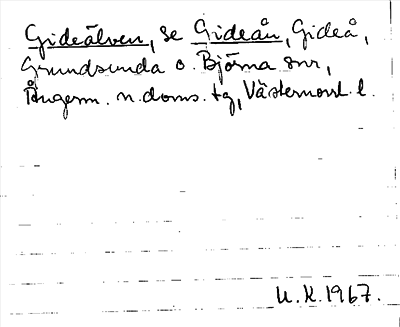 Gideälven, se Gideån, Gideå,
Grundsunda o. Björna snr,
Ångerm. n. doms. tg, Västernorrl. l.
U.K. 1967.